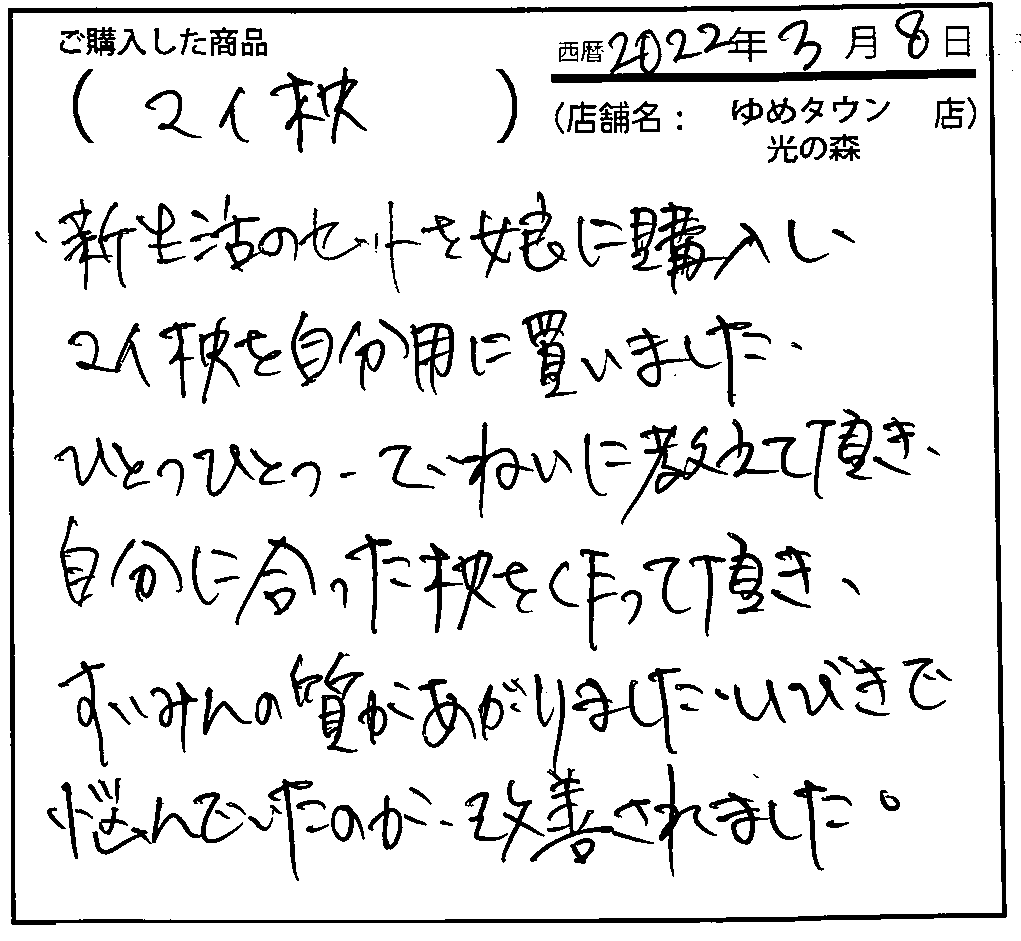 ご購入した商品
西暦2022年3月8日
(マイ枕)
(店舗名：ゆめタウン光の森 店)
新生活のセットを娘に購入し、
マイ枕を自分用に買いました。
ひとつひとつ、ていねいに教えて頂き、
自分に合った枕を作って頂き、
すいみんの質があがりました。いびきで
悩んでいたのが、改善されました。